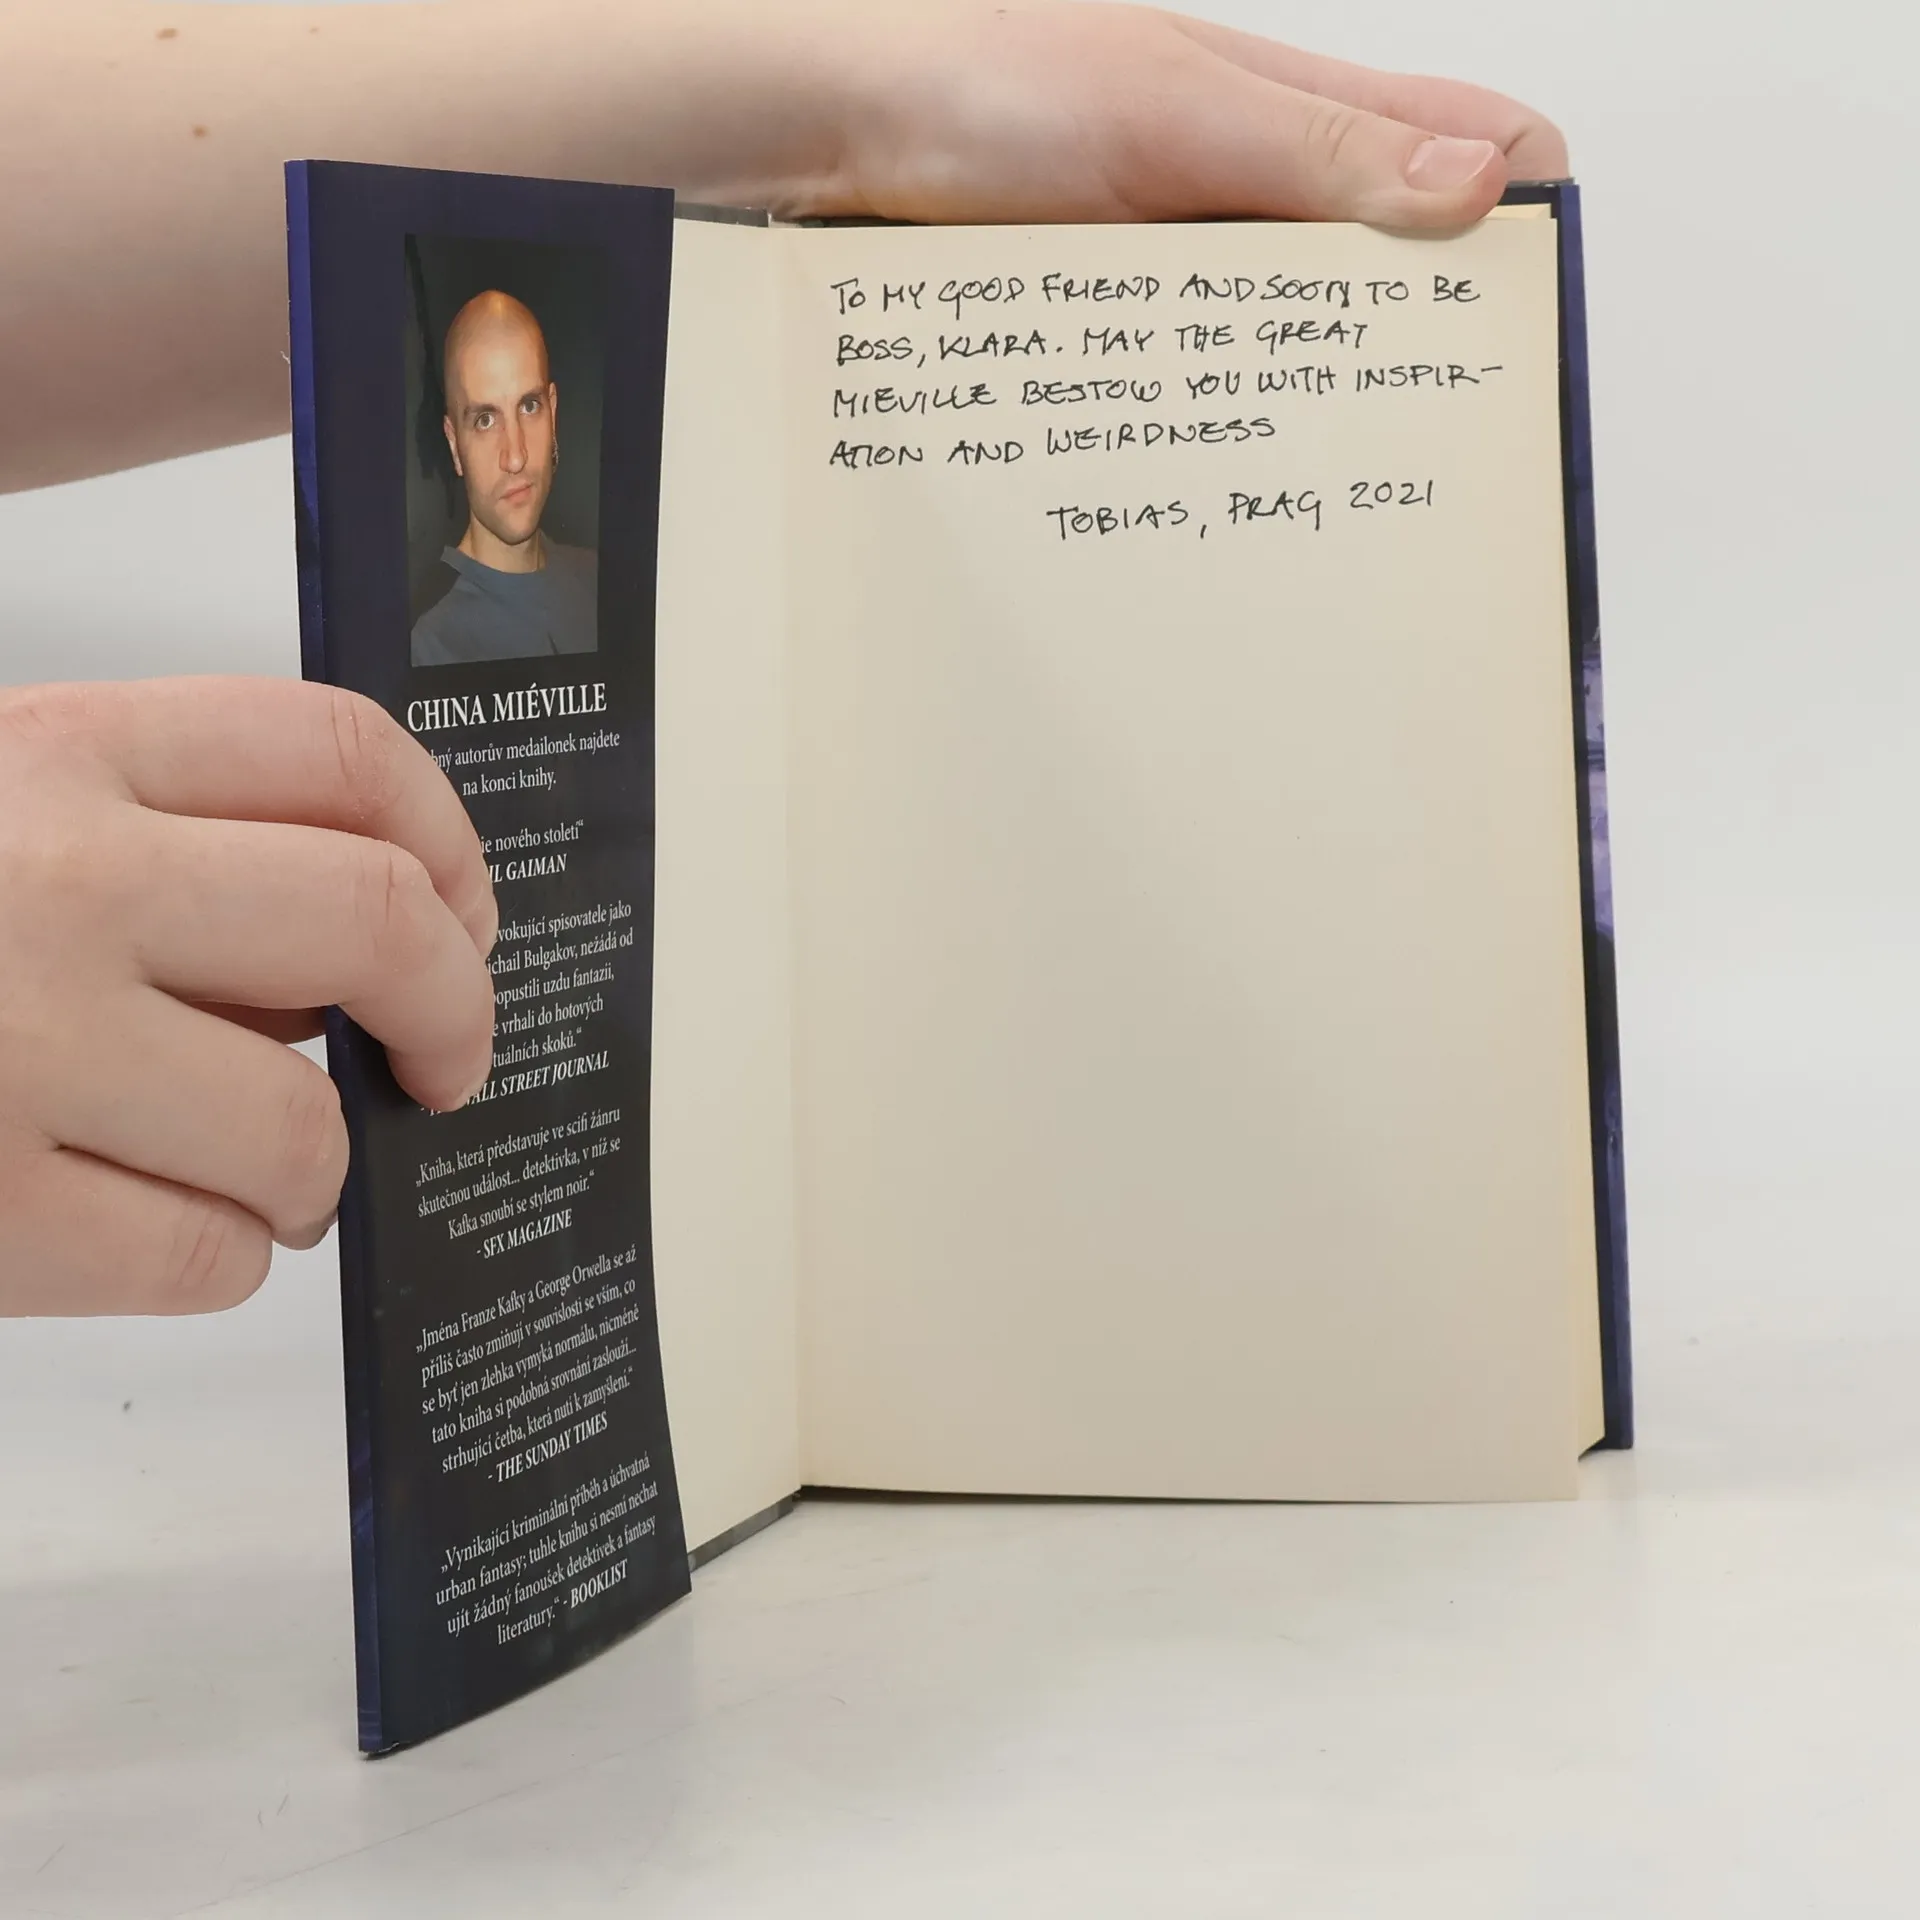 CHINA MIÉVILLE
autorův medailonek najdete
na konci knihy.
nového století“
GAIMAN
spisovatele jako
Bulgakov, nežádá od
uzdu fantazii,
vrhali do hotových
skoků.“
STREET JOURNAL
„Kniha, která představuje ve scifi žánru
skutečnou událost... detektivka, v níž se
Kafka snoubí se stylem noir.“
- SFX MAGAZINE
„Jména Franze Kafky a George Orwella se až
příliš často zmiňují v souvislosti se vším, co
se byť jen zlehka vymyká normálu, nicméně
tato kniha si podobná srovnání zaslouží...
strhující četba, která nutí k zamyšlení.“
- THE SUNDAY TIMES
„Vynikající kriminální příběh a úchvatná
urban fantasy; tuhle knihu si nesmí nechat
ujít žádný fanoušek detektivek a fantasy
literatury.“ - BOOKLIST
TO MY GOOD FRIEND AND SOON TO BE
BOSS, KLARA. MAY THE GREAT
MIEVILLE BESTOW YOU WITH INSPIR-
ATION AND WEIRDNESS
TOBIAS, PRAG 2021